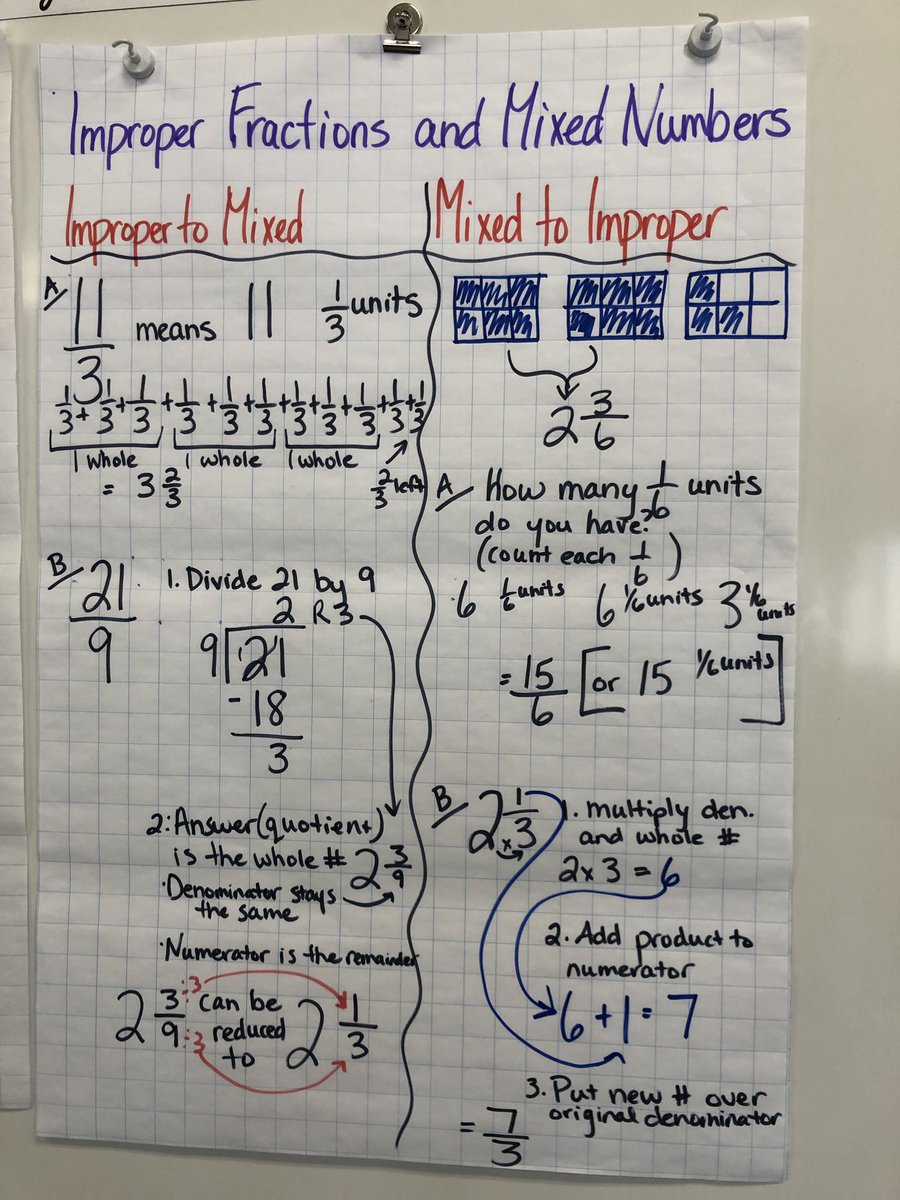 Improper Fractions and Mixed Numbers
Improper to Mixed
A/ 11/3 means 11 1/3 units
1/3 + 1/3 + 1/3 + 1/3 + 1/3 + 1/3 + 1/3 + 1/3 + 1/3 + 1/3 + 1/3
1 whole 1 whole 1 whole 2/3 left
= 3 2/3
B/ 21/9
1. Divide 21 by 9
2 R3
9 21
-18
3
2. Answer (quotient)
is the whole # 2 3/9
·Denominator stays
the same
·Numerator is the remainder
2 3/9 ÷3 ÷3 can be
reduced
to 2 1/3
Mixed to Improper
2 3/6
A/ How many 1/6 units
do you have?
(count each 1/6)
6 1/6 units 6 1/6 units 3 1/6 units
= 15/6 [or 15 1/6 units]
B/ 2 × 1/3
1. multiply den.
and whole #
2 x 3 = 6
2. Add product to
numerator
6 + 1 = 7
3. Put new # over
original denominator
= 7/3